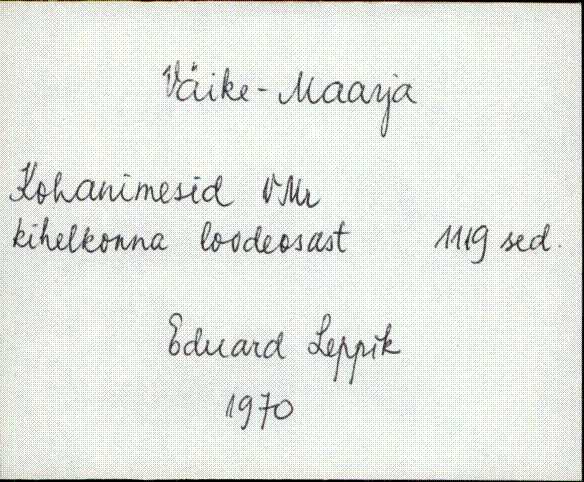 Väike-Maarja
Kohanimesid VMr
kihelkonna loodeosast 1119 sed.
Eduard Leppik
1970